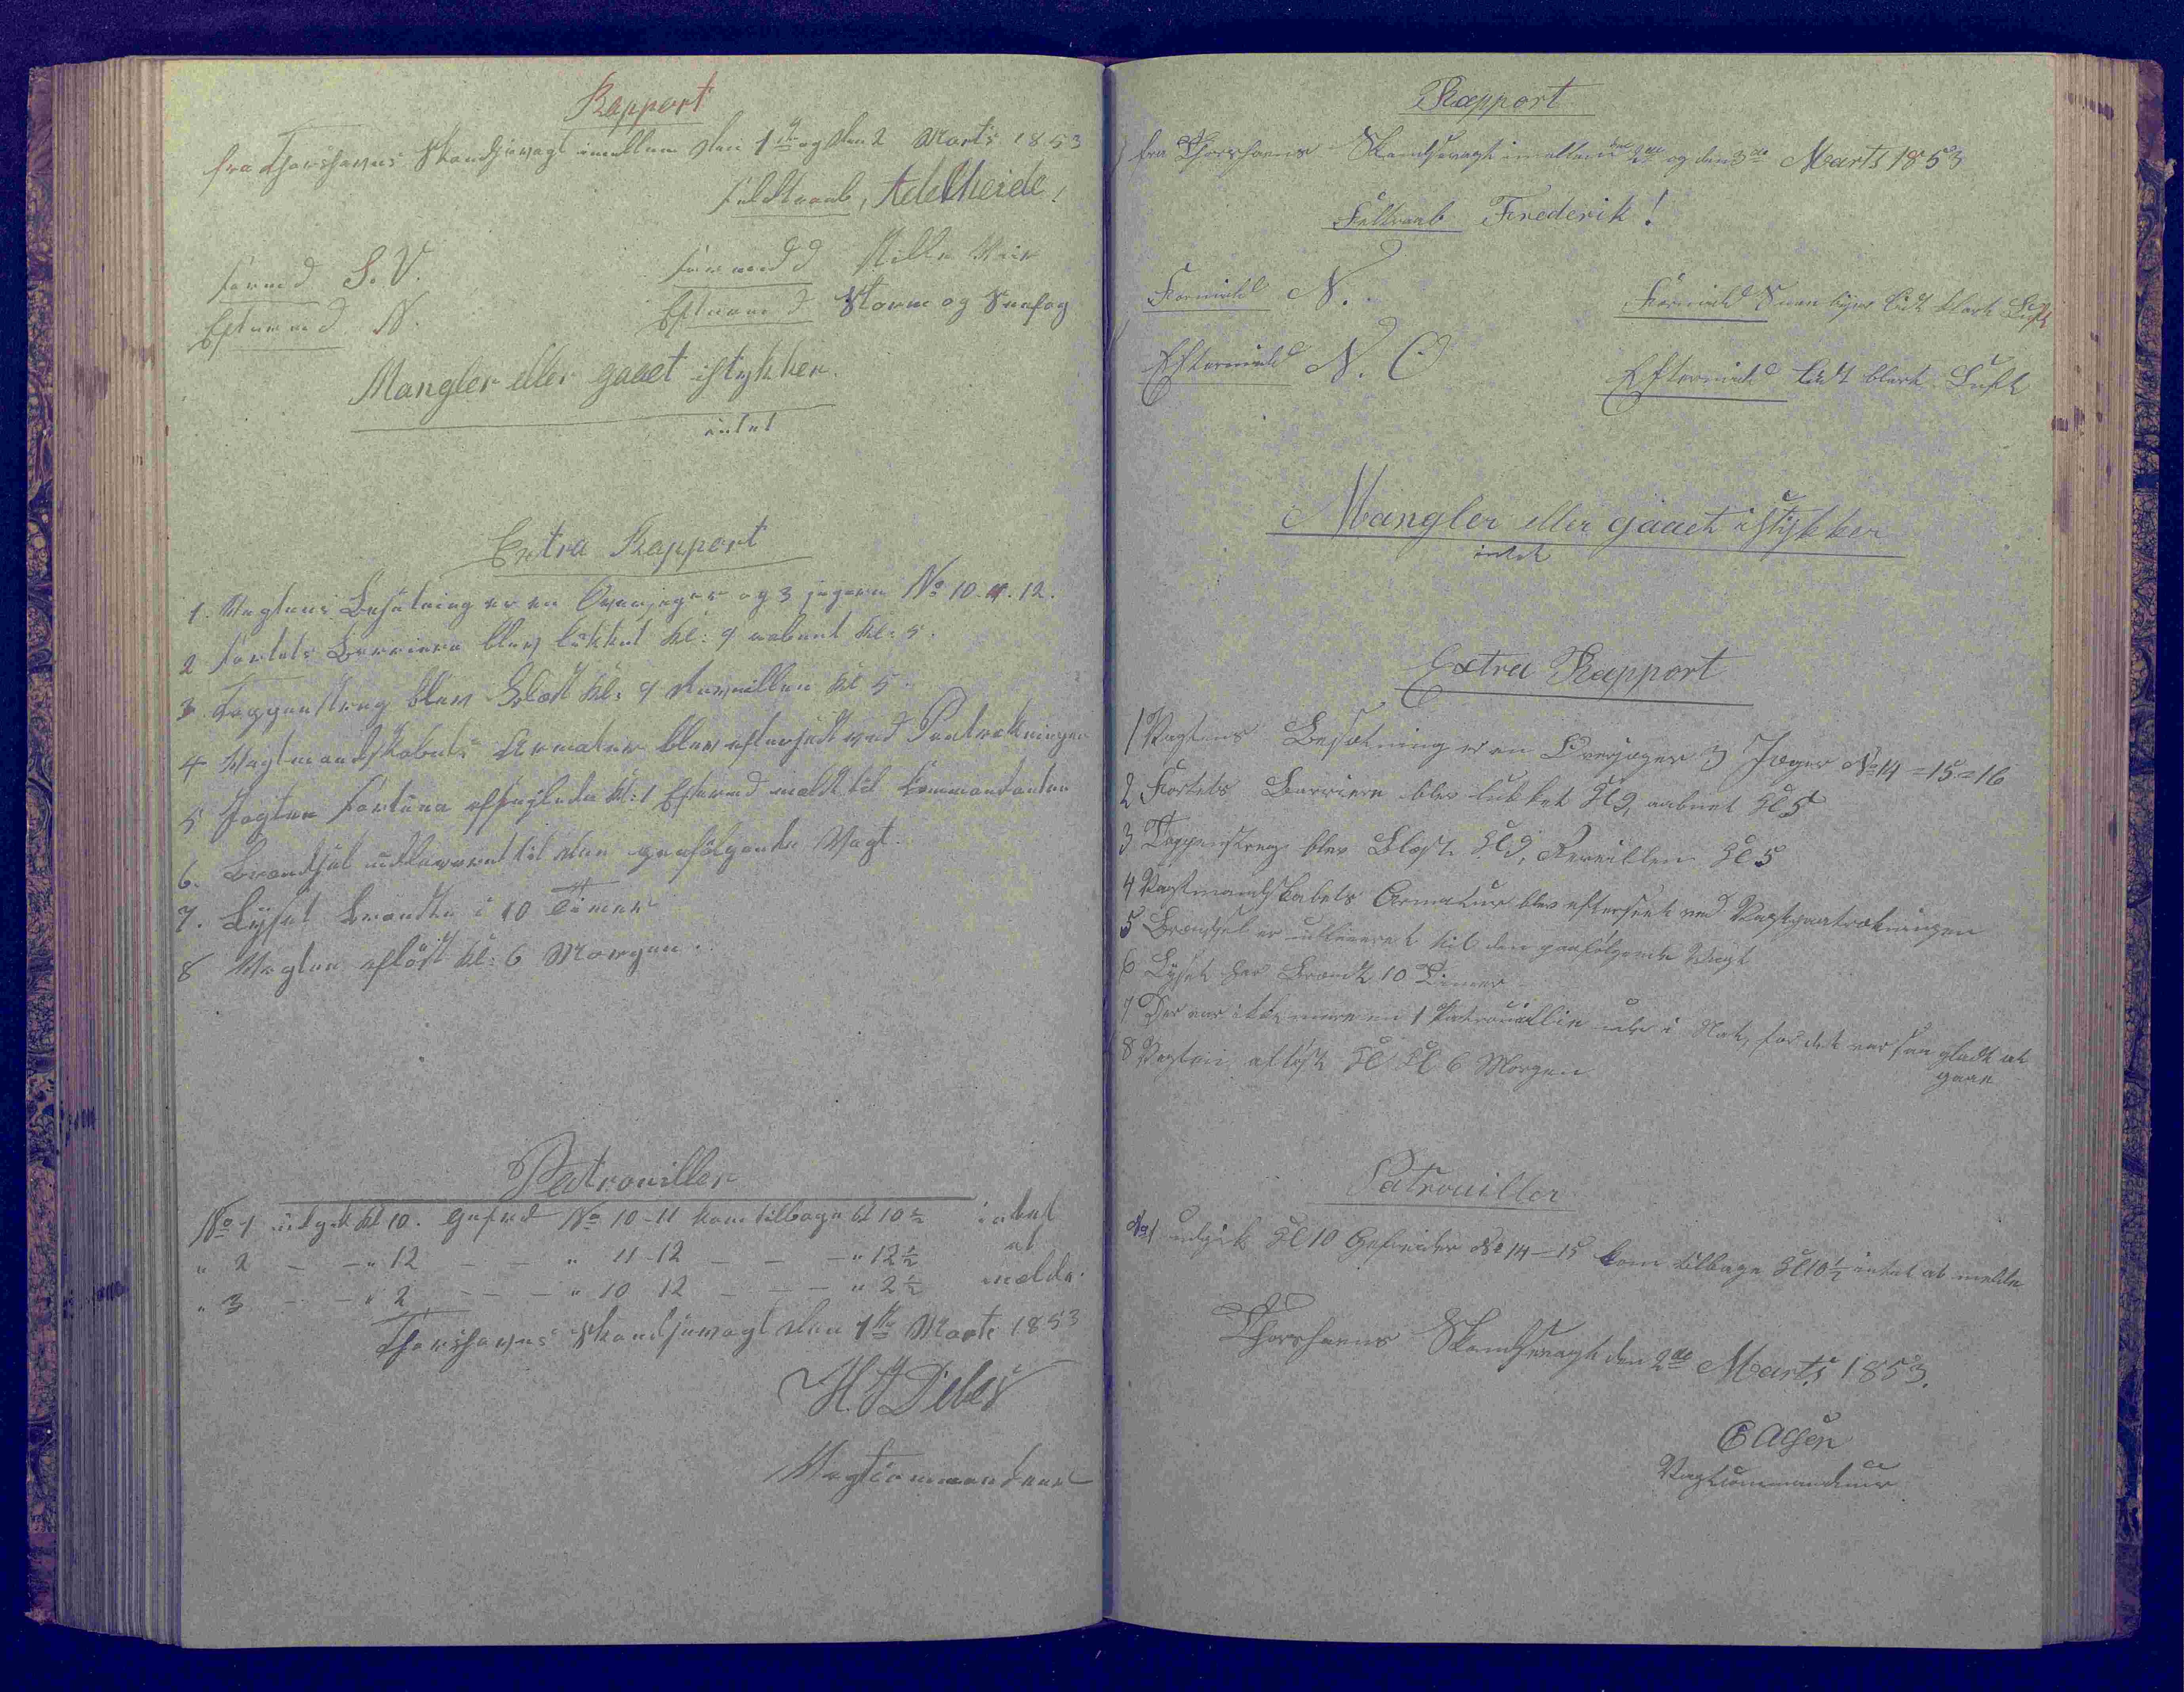 Rapport
fra Thorshavns Skandsevagt imellem den 1ste og den 2 Marts 1853
Feldtraab, Adelheide,
Formd S. V.
Formidd Stille Veir
Eftermd N.
Eftermd Storm og Sneefog
Mangler eller gaaet istykker.
intet
Extra Rapport
1. Vagtens Besætning er en Overjæger og 3 jægere No 10. 11. 12.
2 Fortets Barriere blev lukket Kl: 9 aabnet Kl: 5.
3 Tappenstreg blev Blæst Kl: 9 Reveillen Kl 5.
4 Vagtmandskabets Armatur blev efterseet ved Paatrækningen
5 Jagten Fortuna afseglede Kl: 1 Eftermd meldt til Kommandanten
6. Brændsel udleveret til den paafølgende Vagt.
7. Lyset brændte i 10 Timer
8 Vagten afløst Kl: 6 Morgen.
Patrouiller
No 1 udgik Kl 10. Gefrd No 10-11 kom tilbage Kl 10½ intet
" 2 — — " 12 — — " 11-12 — — — " 12½ at
" 3 — — " 2 — — — " 10 12 — — — " 2½ melde.
Thorshavns Skandsevagt den 1ste Marts 1853
H. Debes
Vagtcommandeur
Rapport
fra Thorshavns Skandsevagt imellem den 2de og den 3de Marts 1853
Feltraab Frederik!
Formidd N.
Formidd Snee byer lidt klark Luft
Eftermidd N. O
Eftermidd lidt klark Luft
Mangler eller gaaet istykker
intet
Extra Rapport
1 Vagtens Besætning er en Overjæger 3 Jæger No 14 = 15 = 16
2 Fortets Barriere blev lukket Kl 9, aabnet Kl 5
3 Tappenstreg blev Blæst Kl 9, Reveillen Kl 5
4 Vagtmandskabets Armatur blev efterseet ved Vagtpaatrækningen
5 Brændsel er utleveret til den paafølgende Vagt
6 Lyset har Brændt 10 Timer
7 Der var ikke mere en 1 Patrouillie ude i Nat, for det var saa gladt at
gaae
8 Vagten afløst Kl Kl 6 Morgen
Patrouiller
No 1 udgik Kl 10 Gefreider No 14 — 15 kom tilbage Kl 10½ intet at melde
Thorshavns Skandsevagt den 2de Marts 1853.
Vagtcommandeur